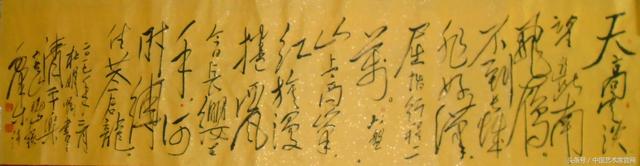 天高云淡
望断南
飞雁
不到长城
非好汉
屈指行程二
万六盘
山上高峰
红旗漫
捲西风
今日长缨在
手何
时缚
住苍龙
清平乐
头条号 / 中国艺术家官网